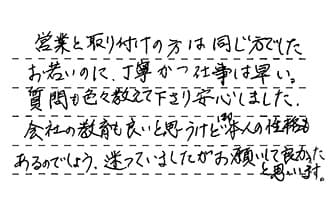 営業と取り付けの方は同じ方でした
お若いのに、丁寧かつ仕事は早い。
質問も色々教えて下さり安心しました.
会社の教育も良いと思うけど御本人の性格も
あるのでしょう、迷っていましたがお願いして良かった
と思います。